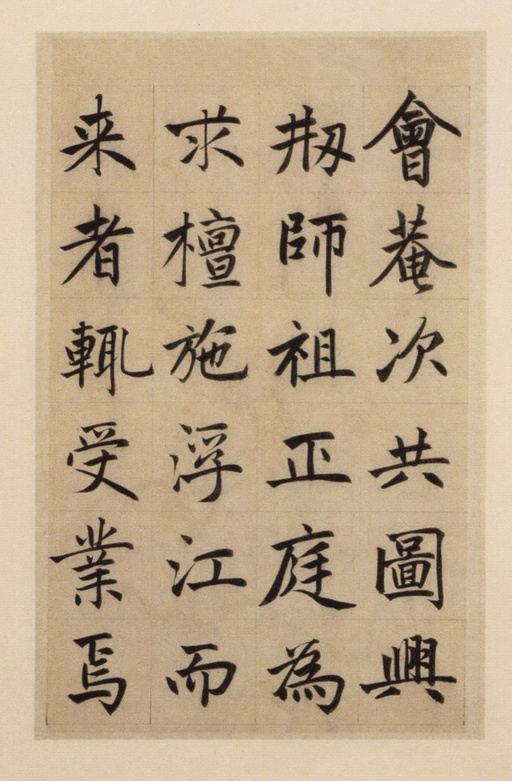 會菴次共圖興
刱師祖正庭為
求檀施浮江而
来者輒受業焉